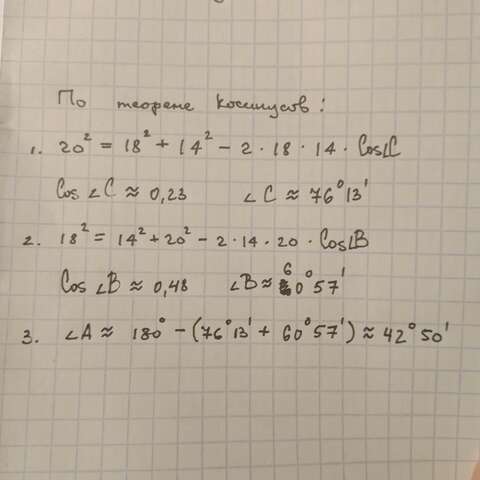 По теореме косинусов:
1. 20² = 18² + 14² - 2 · 18 · 14 · Cos∠C
Cos ∠C ≈ 0,23 ∠C ≈ 76°13'
2. 18² = 14² + 20² - 2 · 14 · 20 · Cos∠B
Cos ∠B ≈ 0,48 ∠B ≈ 60°57'
3. ∠A ≈ 180° - (76°13' + 60°57') ≈ 42°50'